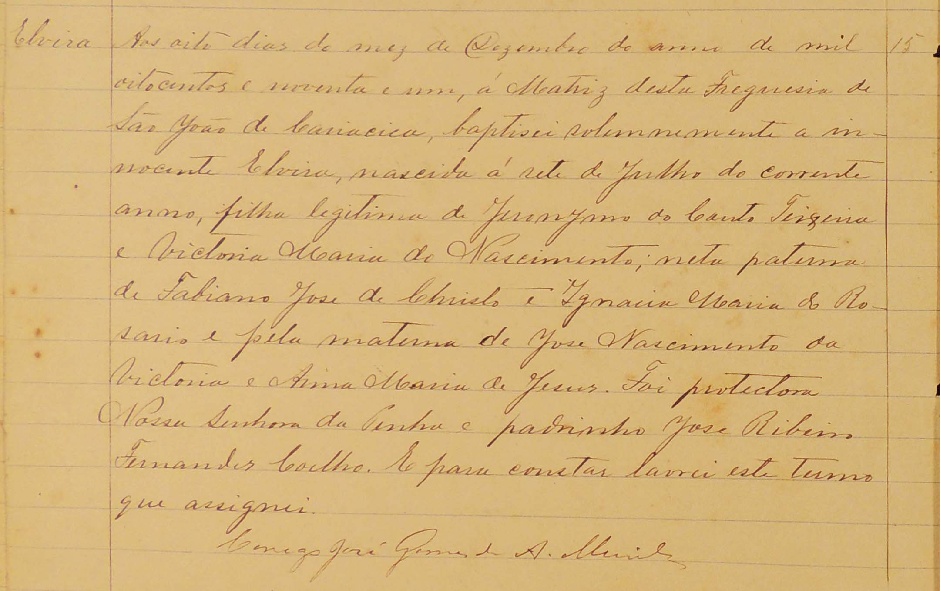 Elvira Aos oito dias do mez de Dezembro do anno de mil 15
oitocentos e noventa e um, á Matriz desta Freguesia de
São João de Cariacica, baptisei solemnemente a in-
nocente Elvira, nascida á sete de Julho do corrente
anno, filha legitima de Jeronymo do Couto Teixeira
e Victoria Maria do Nascimento; neta paterna
de Fabiano Jose de Christo e Ignacia Maria do Ro-
sario e pela materna de Jose Nascimento da
Victoria e Anna Maria de Jesus. Foi protectora
Nossa Senhora da Penha e padrinho Jose Ribeiro
Fernandes Coelho. E para constar lavrei este termo
que assignei.
Conego José Gomes de A.